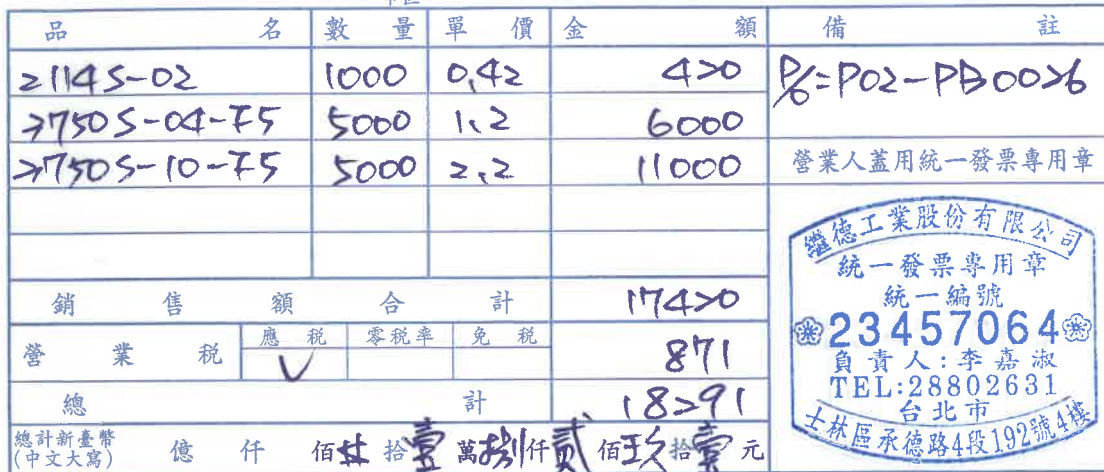 品名 數量 單價 金額 備註
21145-02 1000 0.42 420 P/O=P02-PB0026
2750S-04-F5 5000 1.2 6000
2750S-10-F5 5000 2.2 11000
營業人蓋用統一發票專用章
銷售額合計 17420
營業稅 應稅 零稅率 免稅 871
V
總計 18291
總計新臺幣(中文大寫) 億 仟 佰 拾壹萬捌仟貳佰玖拾壹元
繼德工業股份有限公司
統一發票專用章
統一編號
23457064
負責人:李嘉淑
TEL:28802631
台北市
士林區承德路4段192號4樓